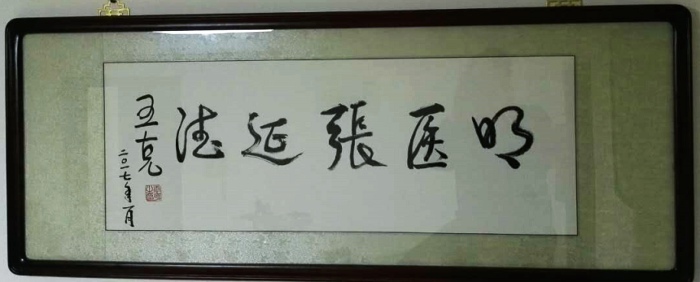 明医張延法
王克
二〇一七年一月